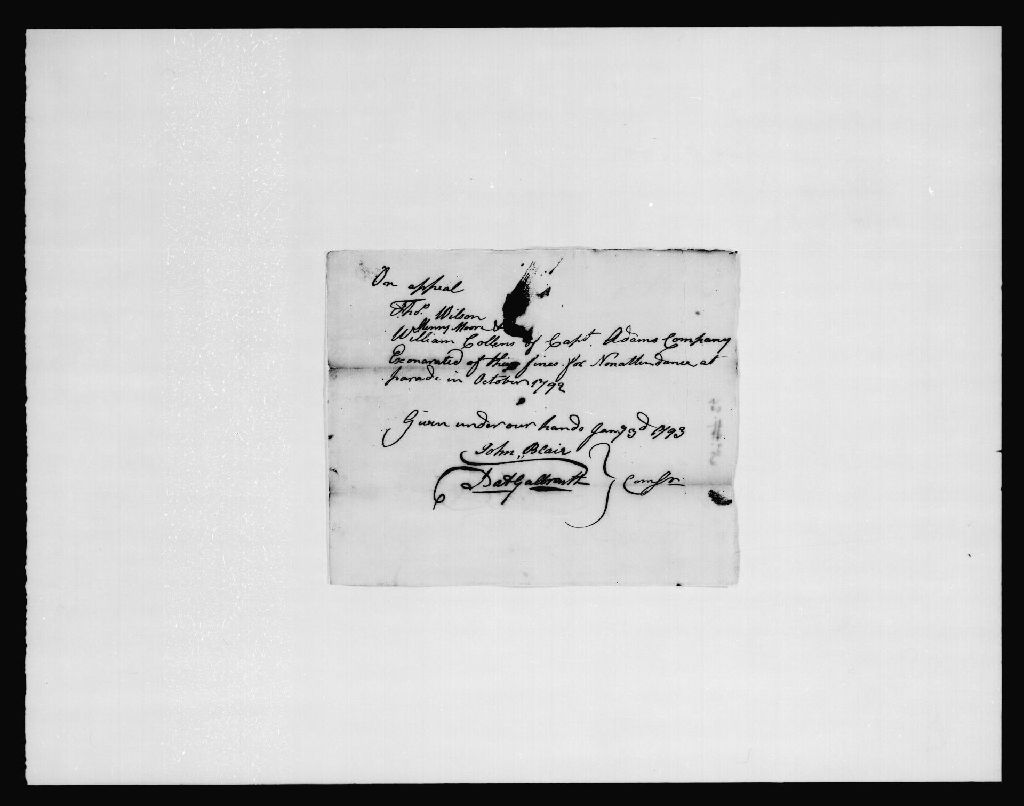 On appeal
Thos. Wilson
Henry Moore &
William Collens of Capt. Adams Company
Exonarated of thier fines for Nonattendance at
parade in October 1792
Given under our hands Jany 3d 1793
John Blair
Bat Galbraith } Comsrs.